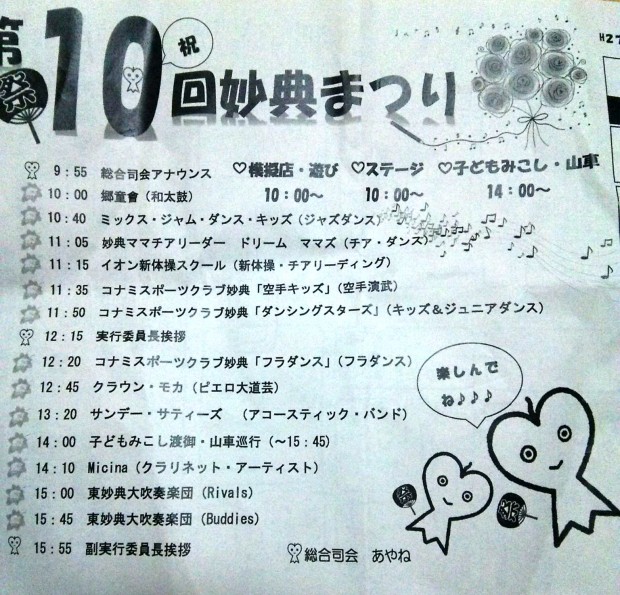 第10回妙典まつり
祝
祭
H27
♡模擬店・遊び ♡ステージ ♡子どもみこし・山車
10:00～ 10:00～ 14:00～
9:55 総合司会アナウンス
10:00 郷童會（和太鼓）
10:40 ミックス・ジャム・ダンス・キッズ（ジャズダンス）
11:05 妙典ママチアリーダー ドリーム ママズ（チア・ダンス）
11:15 イオン新体操スクール（新体操・チアリーディング）
11:35 コナミスポーツクラブ妙典「空手キッズ」（空手演武）
11:50 コナミスポーツクラブ妙典「ダンシングスターズ」（キッズ＆ジュニアダンス）
12:15 実行委員長挨拶
12:20 コナミスポーツクラブ妙典「フラダンス」（フラダンス）
12:45 クラウン・モカ（ピエロ大道芸）
13:20 サンデー・サティーズ （アコースティック・バンド）
14:00 子どもみこし渡御・山車巡行（～15:45）
14:10 Micina（クラリネット・アーティスト）
15:00 東妙典大吹奏楽団（Rivals）
15:45 東妙典大吹奏楽団（Buddies）
15:55 副実行委員長挨拶
総合司会 あやね
楽しんで
ね♪♪♪